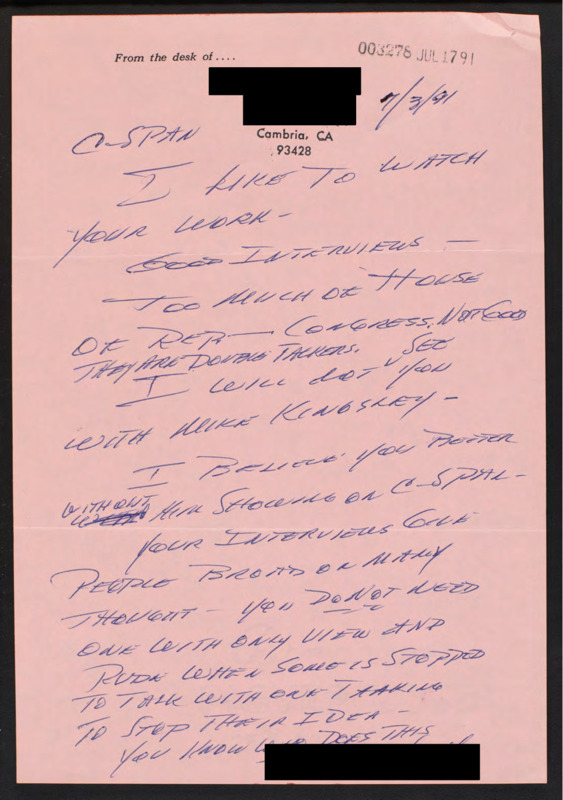 From the desk of....
003278 JUL 17 91
7/3/91
Cambria, CA
93428
C-SPAN
I LIKE TO WATCH
YOUR WORK -
GOOD INTERVIEWS -
TOO MUCH OF HOUSE
OF REP - CONGRESS. NOT GOOD
THEY ARE DOUBLE TALKERS.
I WILL NOT SEE YOU
WITH MIKE KINGSLEY -
I BELIEVE YOU BETTER
WITHOUT HIM SHOWING ON C-SPAN -
YOUR INTERVIEWS GIVE
PEOPLE BROAD ON MANY
THOUGHT - YOU DO NOT NEED
ONE WITH ONLY VIEW AND
RUDE WHEN SOME IS STOPPED
TO TALK WITH ONE TALKING
TO STOP THEIR IDEA -
YOU KNOW WHO DOES THIS